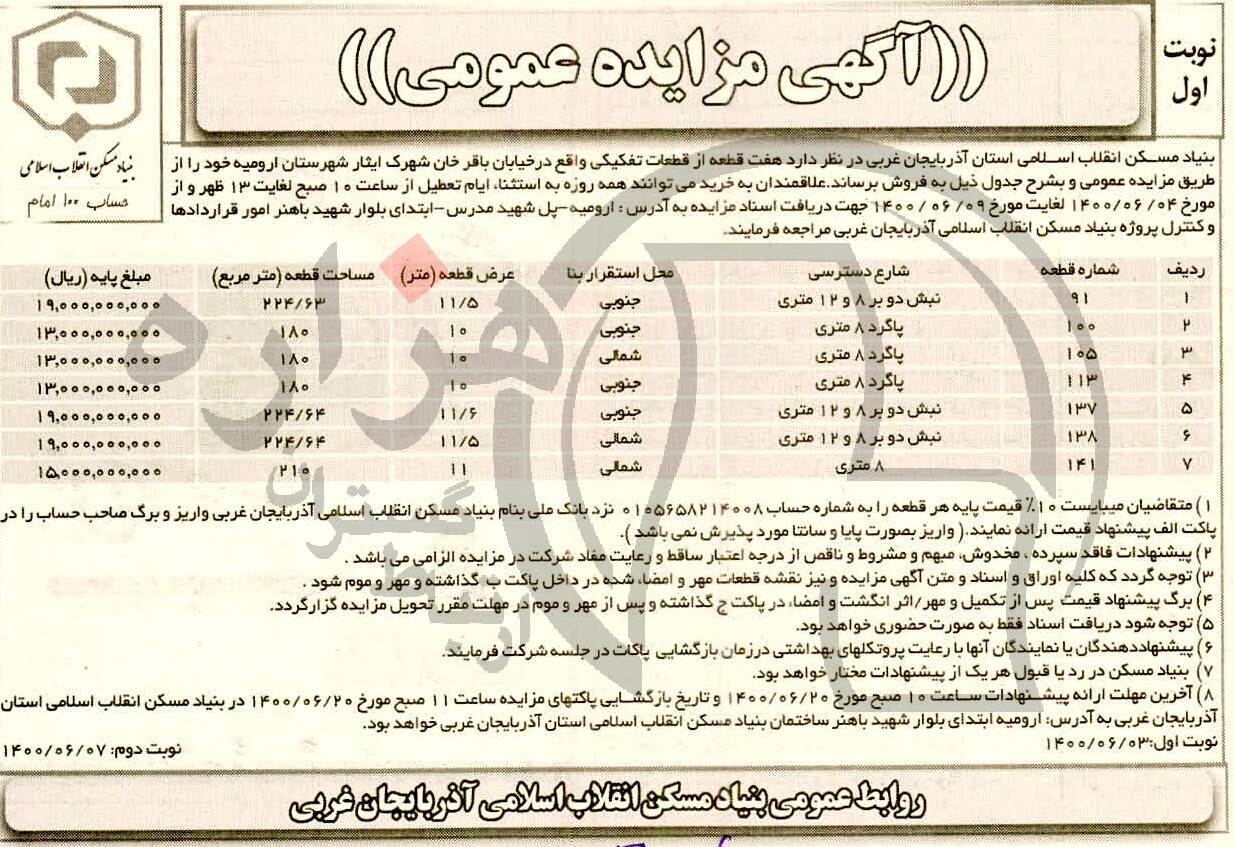 نوبت
اول
((آگهی مزایده عمومی))
بنیاد مسکن انقلاب اسلامی
حساب ۱۰۰ امام
بنیاد مسـکن انقلاب اسـلامی استان آذربایجان غربی در نظر دارد هفت قطعه از قطعات تفکیکی واقع درخیابان باقر خان شهرک ایثار شهرستان ارومیه خود را از
طریق مزایده عمومی و بشرح جدول ذیل به فروش برساند.علاقمندان به خرید می توانند همه روزه به استثناء ایام تعطیل از ساعت ۱۰ صبح لغایت ۱۳ ظهر و از
مورخ ۱۴۰۰/۰۶/۰۴ لغایت مورخ ۱۴۰۰/۰۶/۰۹ جهت دریافت اسناد مزایده به آدرس : ارومیه-پل شهید مدرس-ابتدای بلوار شهید باهنر امور قراردادها
و کنترل پروژه بنیاد مسکن انقلاب اسلامی آذربایجان غربی مراجعه فرمایند.
ردیف شماره قطعه شارع دسترسی محل استقرار بنا عرض قطعه (متر) مساحت قطعه (متر مربع) مبلغ پایه (ریال)
۱ ۹۱ نبش دو بر ۸ و ۱۲ متری جنوبی ۱۱/۵ ۲۲۴/۶۳ ۱۹,۰۰۰,۰۰۰,۰۰۰
۲ ۱۰۰ پاگرد ۸ متری جنوبی ۱۰ ۱۸۰ ۱۳,۰۰۰,۰۰۰,۰۰۰
۳ ۱۰۵ پاگرد ۸ متری شمالی ۱۰ ۱۸۰ ۱۳,۰۰۰,۰۰۰,۰۰۰
۴ ۱۱۳ پاگرد ۸ متری جنوبی ۱۰ ۱۸۰ ۱۳,۰۰۰,۰۰۰,۰۰۰
۵ ۱۳۷ نبش دو بر ۸ و ۱۲ متری جنوبی ۱۱/۶ ۲۲۴/۶۴ ۱۹,۰۰۰,۰۰۰,۰۰۰
۶ ۱۳۸ نبش دو بر ۸ و ۱۲ متری شمالی ۱۱/۵ ۲۲۴/۶۴ ۱۹,۰۰۰,۰۰۰,۰۰۰
۷ ۱۴۱ ۸ متری شمالی ۱۱ ۲۱۰ ۱۵,۰۰۰,۰۰۰,۰۰۰
۱) متقاضیان میبایست ۱۰٪ قیمت پایه هر قطعه را به شماره حساب ۰۱۰۵۶۵۸۲۱۴۰۰۸ نزد بانک ملی بنام بنیاد مسکن انقلاب اسلامی آذربایجان غربی واریز و برگ صاحب حساب را در
پاکت الف پیشنهاد قیمت ارائه نمایند.( واریز بصورت پایا و سانتا مورد پذیرش نمی باشد ).
۲) پیشنهادات فاقد سپرده ، مخدوش، مبهم و مشروط و ناقص از درجه اعتبار ساقط و رعایت مفاد شرکت در مزایده الزامی می باشد .
۳) توجه گردد که کلیه اوراق و اسناد و متن آگهی مزایده و نیز نقشه قطعات مهر و امضاء شده در داخل پاکت ب گذاشته و مهر و موم شود .
۴) برگ پیشنهاد قیمت پس از تکمیل و مهر/اثر انگشت و امضاء در پاکت ج گذاشته و پس از مهر و موم در مهلت مقرر تحویل مزایده گزارگردد.
۵) توجه شود دریافت اسناد فقط به صورت حضوری خواهد بود.
۶) پیشنهاددهندگان یا نمایندگان آنها با رعایت پروتکلهای بهداشتی درزمان بازگشایی پاکات در جلسه شرکت فرمایند.
۷) بنیاد مسکن در رد یا قبول هر یک از پیشنهادات مختار خواهد بود.
۸) آخرین مهلت ارائه پیشـنهادات سـاعت ۱۰ صبح مورخ ۱۴۰۰/۰۶/۲۰ و تاریخ بازگشـایی پاکتهای مزایده ساعت ۱۱ صبح مورخ ۱۴۰۰/۰۶/۲۰ در بنیاد مسکن انقلاب اسلامی استان
آذربایجان غربی به آدرس: ارومیه ابتدای بلوار شهید باهنر ساختمان بنیاد مسکن انقلاب اسلامی استان آذربایجان غربی خواهد بود.
نوبت اول:۱۴۰۰/۰۶/۰۳ نوبت دوم: ۱۴۰۰/۰۶/۰۷
روابط عمومی بنیاد مسکن انقلاب اسلامی آذربایجان غربی
هزاره